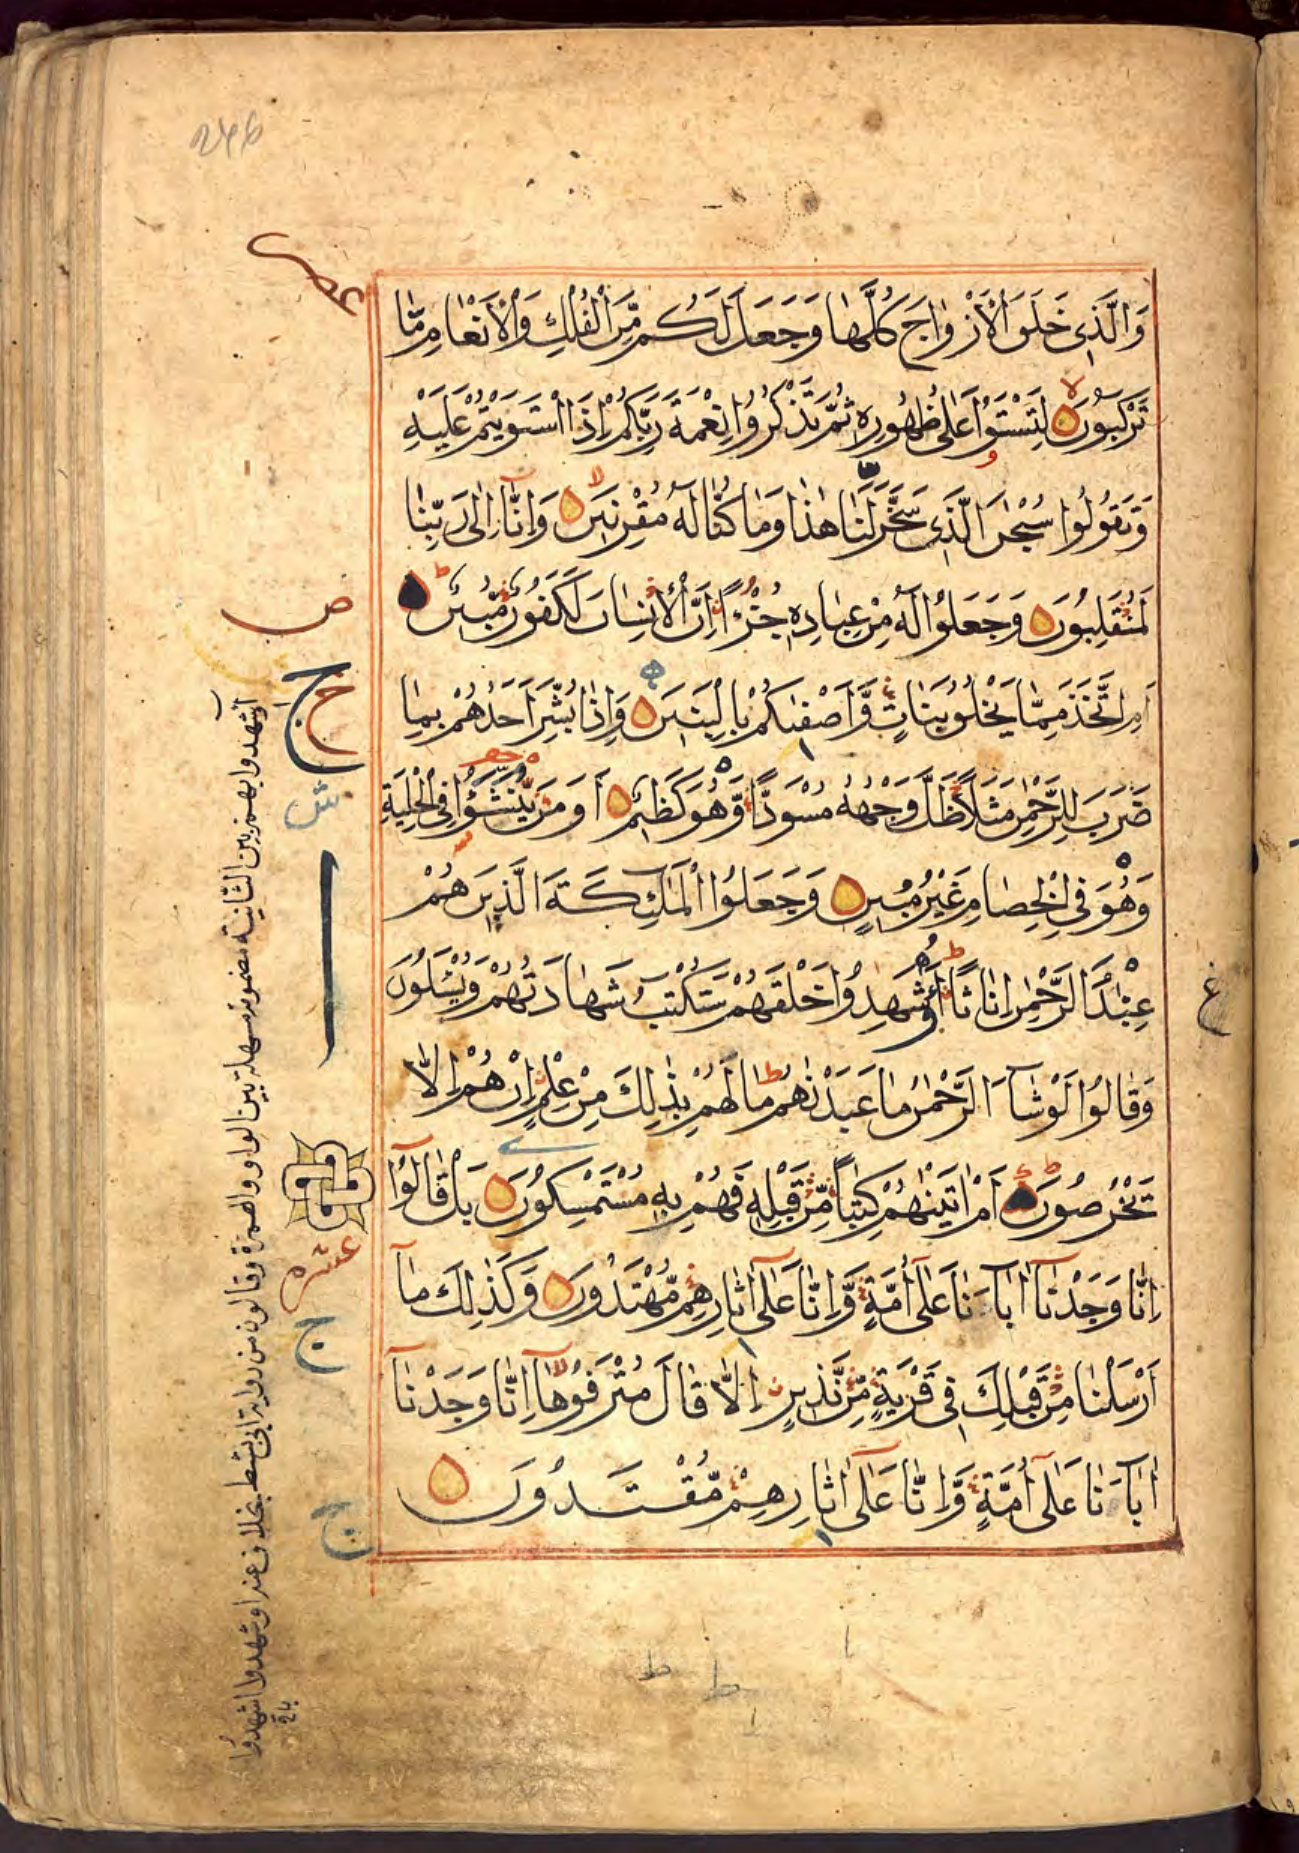 وَالَّذِي خَلَقَ الْأَزْوَاجَ كُلَّهَا وَجَعَلَ لَكُم مِّنَ الْفُلْكِ وَالْأَنْعَامِ مَا
تَرْكَبُونَ لِتَسْتَوُا عَلَى ظُهُورِهِ ثُمَّ تَذْكُرُوا نِعْمَةَ رَبِّكُمْ إِذَا اسْتَوَيْتُمْ عَلَيْهِ
وَتَقُولُوا سُبْحٰنَ الَّذِي سَخَّرَ لَنَا هٰذَا وَمَا كُنَّا لَهُ مُقْرِنِينَ وَإِنَّا إِلٰى رَبِّنَا
لَمُنْقَلِبُونَ وَجَعَلُوا لَهُ مِنْ عِبَادِهِ جُزْءًا إِنَّ الْإِنْسَانَ لَكَفُورٌ مُّبِينٌ
أَمِ اتَّخَذَ مِمَّا يَخْلُقُ بَنَاتٍ وَّأَصْفٰىكُمْ بِالْبَنِينَ وَإِذَا بُشِّرَ أَحَدُهُمْ بِمَا
ضَرَبَ لِلرَّحْمٰنِ مَثَلًا ظَلَّ وَجْهُهُ مُسْوَدًّا وَّهُوَ كَظِيمٌ أَوَمَن يُّنَشَّؤُا فِي الْحِلْيَةِ
وَهُوَ فِي الْخِصَامِ غَيْرُ مُبِينٍ وَجَعَلُوا الْمَلٰئِكَةَ الَّذِينَ هُمْ
عِبٰدُ الرَّحْمٰنِ إِنَاثًا أَشَهِدُوا خَلْقَهُمْ سَتُكْتَبُ شَهَادَتُهُمْ وَيُسْـَٔلُونَ
وَقَالُوا لَوْ شَآءَ الرَّحْمٰنُ مَا عَبَدْنٰهُمْ مَا لَهُمْ بِذٰلِكَ مِنْ عِلْمٍ إِنْ هُمْ إِلَّا
يَخْرُصُونَ أَمْ اٰتَيْنٰهُمْ كِتٰبًا مِّن قَبْلِهِ فَهُمْ بِهِ مُسْتَمْسِكُونَ بَلْ قَالُوٓا
إِنَّا وَجَدْنَآ اٰبَآءَنَا عَلٰٓى أُمَّةٍ وَّإِنَّا عَلٰٓى اٰثَارِهِمْ مُّهْتَدُونَ وَكَذٰلِكَ مَآ
أَرْسَلْنَا مِن قَبْلِكَ فِي قَرْيَةٍ مِّن نَّذِيرٍ إِلَّا قَالَ مُتْرَفُوهَآ إِنَّا وَجَدْنَآ
اٰبَآءَنَا عَلٰٓى أُمَّةٍ وَّإِنَّا عَلٰٓى اٰثَارِهِمْ مُّقْتَدُونَ
ص
ج
عشره
ج
ج
ع
ءاشهدوا بهمزتين الثانية مضمومة مسهلة بين الواو والهمزة وقالون من رواية ابي نشيط بخلاف عنه اوشهدوا اشهدوا
باق